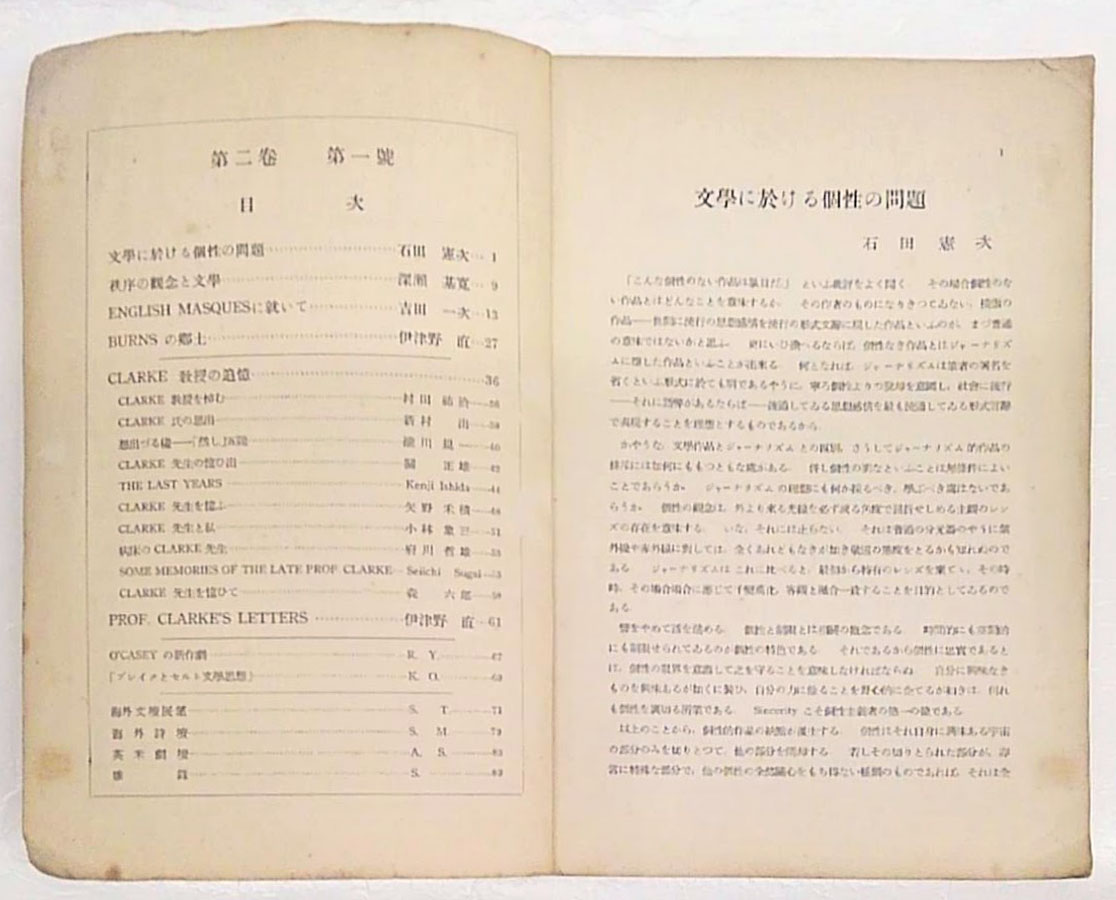 第二卷 第一號
目 次
文學に於ける個性の問題 石田 憲次 1
秩序の觀念と文學 深瀨 基寬 9
ENGLISH MASQUESに就いて 吉田 一次 13
BURNS の鄕土 伊津野 直 27
CLARKE 敎授の追憶 36
CLARKE 敎授を悼む 村田
CLARKE 氏の思出 新村 出
想出づる儘
CLARKE 先生の憶ひ出 正雄
THE LAST YEARS Kenji Ishida 44
CLARKE 先生を憶ふ 矢野 禾積
CLARKE 先生と私 小林 象三 51
病床の CLARKE 先生 哲雄
SOME MEMORIES OF THE LATE PROF. CLARKE Seiichi Sugai
CLARKE 先生を憶ひて 六郎
PROF. CLARKE'S LETTERS 伊津野 直 61
O'CASEY の新作劇 R. Y. 67
「ブレイクとセルト文學思想」 K. O. 69
海外文壇 S. T.
海外詩壇 S. M. 79
英米劇壇 A. S.
雜 錄 S.
1
文學に於ける個性の問題
石田憲次
「こんな個性のない作品は駄目だ。」といふ批評をよく聞く。 その場合個性のな
い作品とはどんなことを意味するか。 その作者のものになりきつてゐない、模倣の
作品――世間に流行の思想感情を流行の形式文辭に現した作品といふのが、まづ普通
の意味ではないかと思ふ。 更にいひ換へるならば、個性なき作品とはジャーナリズ
ムに墮した作品といふことが出來る。 何となれば、ジャーナリズムは筆者の署名を
省くといふ形式に於ても明であるやうに、寧ろ個性よりの脫却を意圖し、社會に流行
――それに語弊があるならば――流通してゐる思想感情を最も流通してゐる形式言辭
で表現することを理想とするものであるから。
かやうな、文學作品とジャーナリズム との區別、さうしてジャーナリズム的作品の
排斥には如何にももつともな處がある。 併し個性の的なといふことは無條件によい
ことであらうか。 ジャーナリズムの理想にも何か採るべき、學ぶべき處はないであ
らうか。 個性の觀念は、外より來る光線を必ず或る角度で屈折せしめる主觀のレン
ズの存在を意味する。 いな、それには止らない。 それは普通の分光器のやうに紫
外線や赤外線に對しては、全くあれどもなきが如き の態度をとるかも知れぬので
ある。 ジャーナリズムは これに比べると、最初から特有のレンズを棄てゝ、その時
時、その場合場合に應じて千變萬化、客觀と融合一致することを目的としてゐるので
ある。
譬をやめて話を進める。 個性と制限とは相關の觀念である。 時間的にも空間的
にも制限せられてゐるのが個性の特色である。 それであるから個性に忠實であると
は、個性の限界を意識して之を守ることを意味しなければならぬ。 自分に興味なき
ものを興味あるが如くに裝ひ、自分の力に餘ることを野心的に企てるが如きは、何れ
も個性を裏切る所業である。 Sincerity こそ個性主義者の唯一の德である。
以上のことから、個性的作品の缺點が派生する。 個性はそれ自身に興味ある宇宙
の部分のみを切りとつて、他の部分を閑却する。 若しその切りとられた部分が、非
常に特殊な部分で、他の個性の全然關心をもち得ない種類のものであれば、それは全